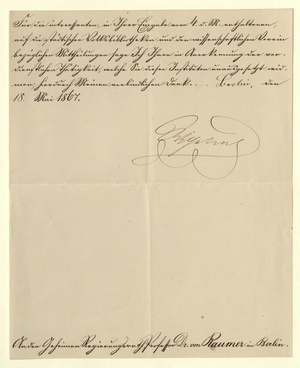 Für die interessanten, in Ihrer Eingabe vom 4. d. M. enthaltenen,
auf die städtischen Volksbibliotheken und den wissenschaftlichen Verein
bezüglichen Mittheilungen sage Ich Ihnen in Anerkennung der ver-
dienstlichen Thätigkeit, welche Sie diesen Instituten unausgesetzt wid-
men hierdurch Meinen verbindlichen Dank. Berlin, den
18 Mai 1861.
An den Geheimen Regierungsrath Professor Dr. von Raumer in Berlin.